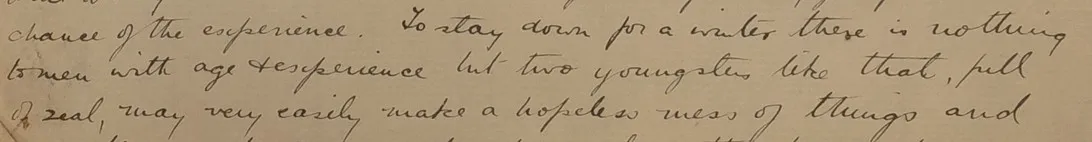 chance of the experience. To stay down for a winter there is nothing
to men with age & experience but two youngsters like that, full
of zeal, may very easily make a hopeless mess of things and